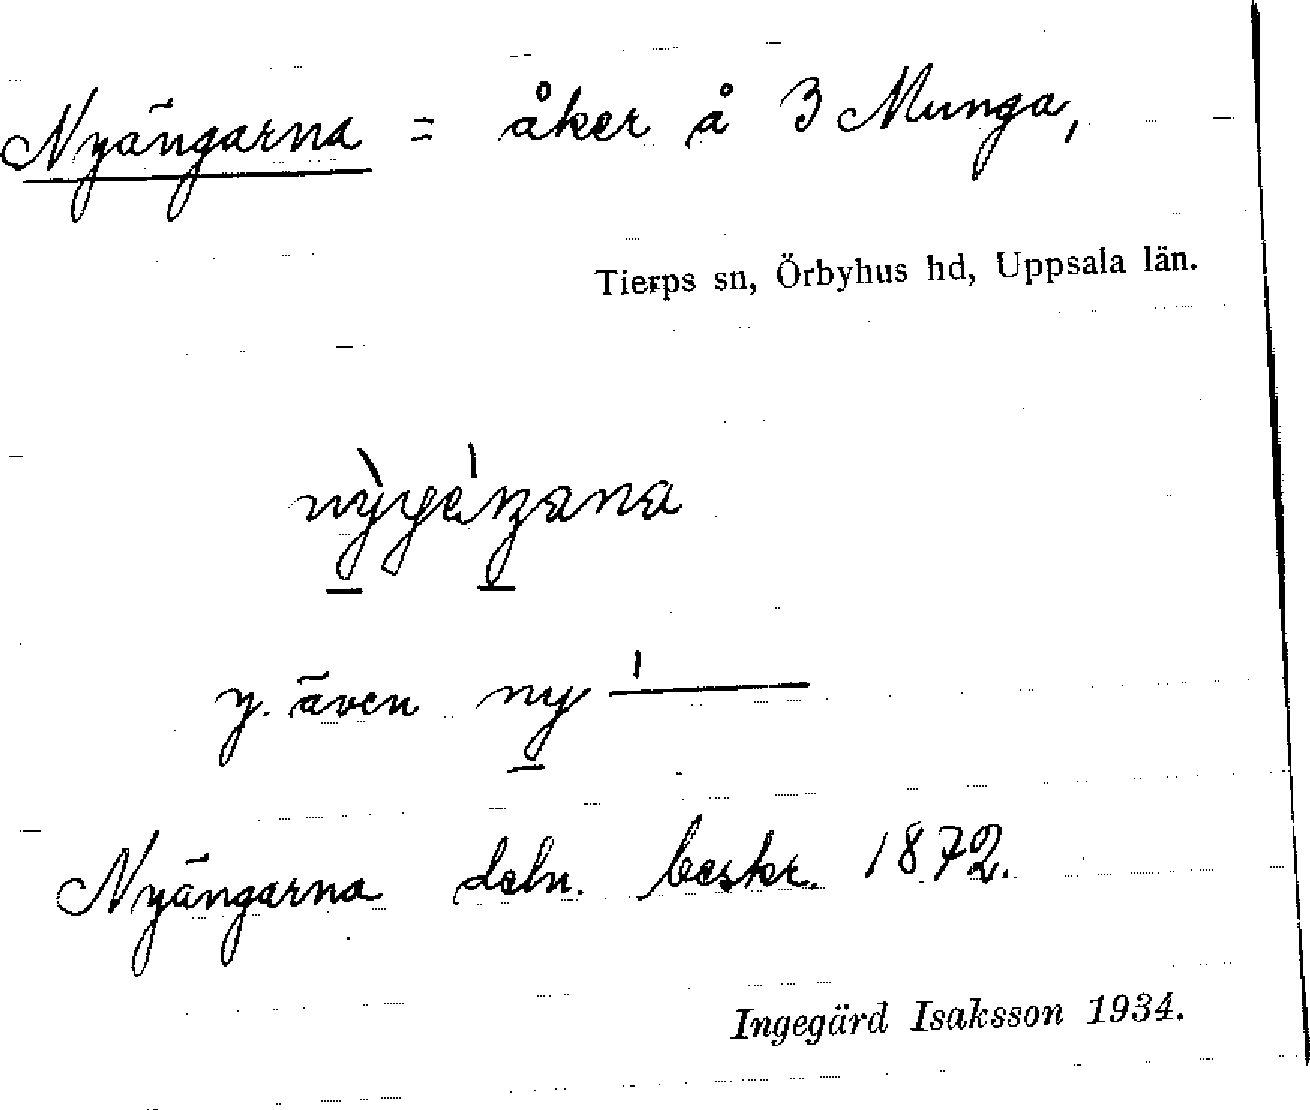 Nyängarna = åker å 3 Munga,
Tierps sn, Örbyhus hd, Uppsala län.
y. även ny
Nyängarna deln. beskr. 1872.
Ingegärd Isaksson 1934.